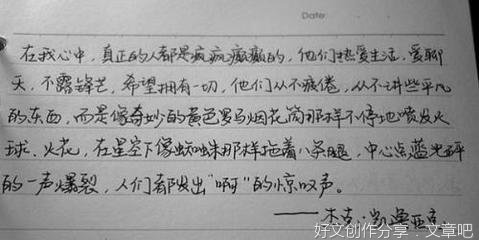 Date:
在我心中，真正的人都是疯疯癫癫的，他们热爱生活，爱聊
天，不露锋芒，希望拥有一切，他们从不疲倦，从不讲些平凡
的东西，而是像奇妙的黄色罗马烟花筒那样不停地喷发火
球、火花，在星空下像蜘蛛那样拖着八条腿，中心点蓝光砰
的一声爆裂，人们都发出“啊”的惊叹声。
——杰克·凯鲁亚克
好文创作分享：文章吧